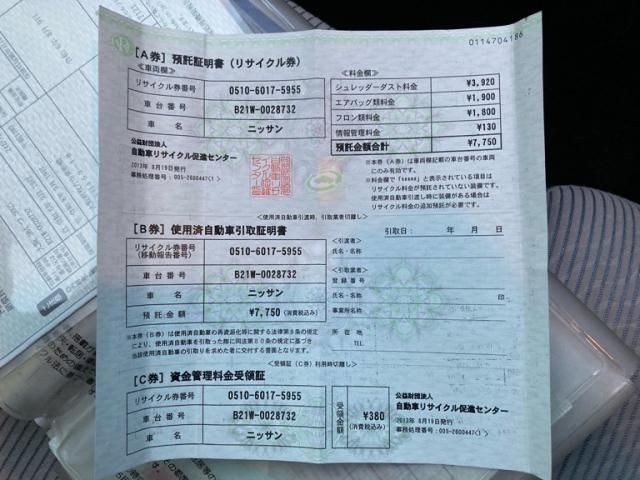 0114704186
[A券] 預託証明書 (リサイクル券)
<車両欄>
リサイクル券番号 0510-6017-5955
車台番号 B21W-0028732
車名 ニッサン
公益財団法人
自動車リサイクル促進センター
2013年 8月19日発行
事務処理番号:005-2600447(1)
<料金欄>
シュレッダーダスト料金 ¥3,920
エアバッグ類料金 ¥1,900
フロン類料金 ¥1,800
情報管理料金 ¥130
預託金額合計 ¥7,750
※本券(A券)は車両欄記載の車台番号の車両
にのみ有効です。
※料金欄で「*****」と表示されている項目は
リサイクル料金が預託されていない装備です。
使用済自動車引渡し時に装備がある場合は
リサイクル料金の追加預託が必要です。
<使用済自動車引渡時、引取業者切離し>
[B券] 使用済自動車引取証明書
引取日: 年 月 日
リサイクル券番号
(移動報告番号) 0510-6017-5955
車台番号 B21W-0028732
車名 ニッサン
預託金額 ¥7,750 (消費税込み)
<引渡者>
氏名・名称
<引取業者>
登録番号
氏名・名称 印
事業所名
所在地
TEL
※本券(B券)は使用済自動車の再資源化等に関する法律第8条の規定
により、使用済自動車を引取った際に同法第80条の規定に基づき
当該使用済自動車の引取りを求めた者に交付する書面となります。
<受領証(C券)利用時切離し>
[C券] 資金管理料金受領証
リサイクル券番号 0510-6017-5955
車台番号 B21W-0028732
車名 ニッサン
受領金額 ¥380
(消費税込み)
公益財団法人
自動車リサイクル促進センター
2013年 8月19日発行
事務処理番号:005-2600447(1)